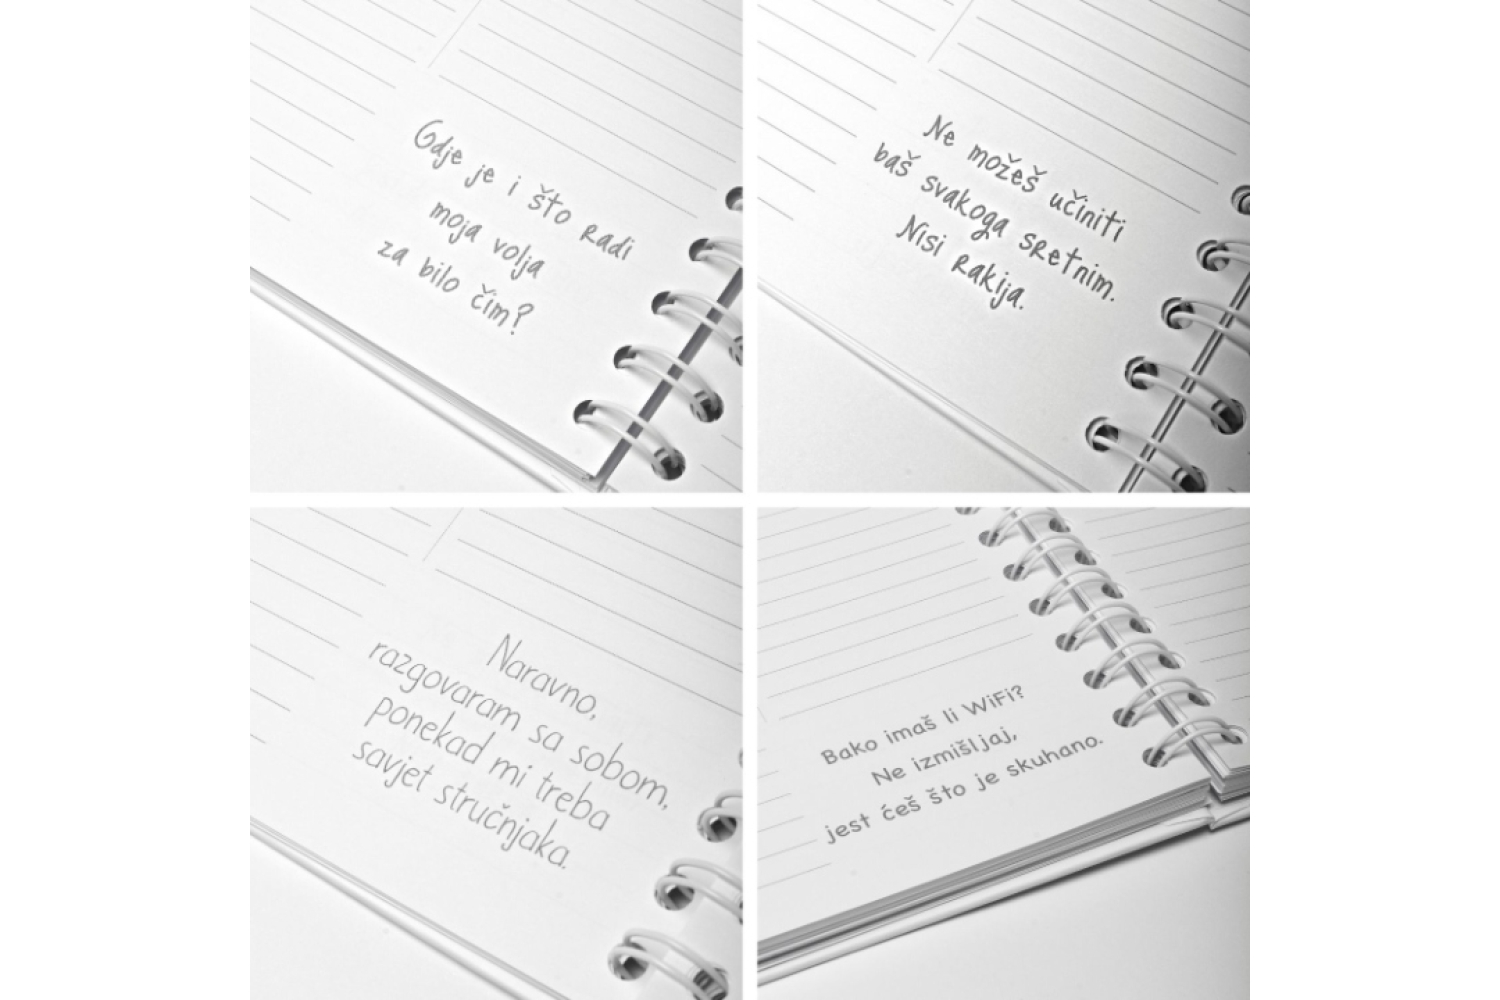 Gdje je i što radi
moja volja
za bilo čim?
Ne možeš učiniti
baš svakoga sretnim.
Nisi rakija.
Naravno,
razgovaram sa sobom,
ponekad mi treba
savjet stručnjaka.
Bako imaš li WiFi?
Ne izmišljaj,
jest ćeš što je skuhano.